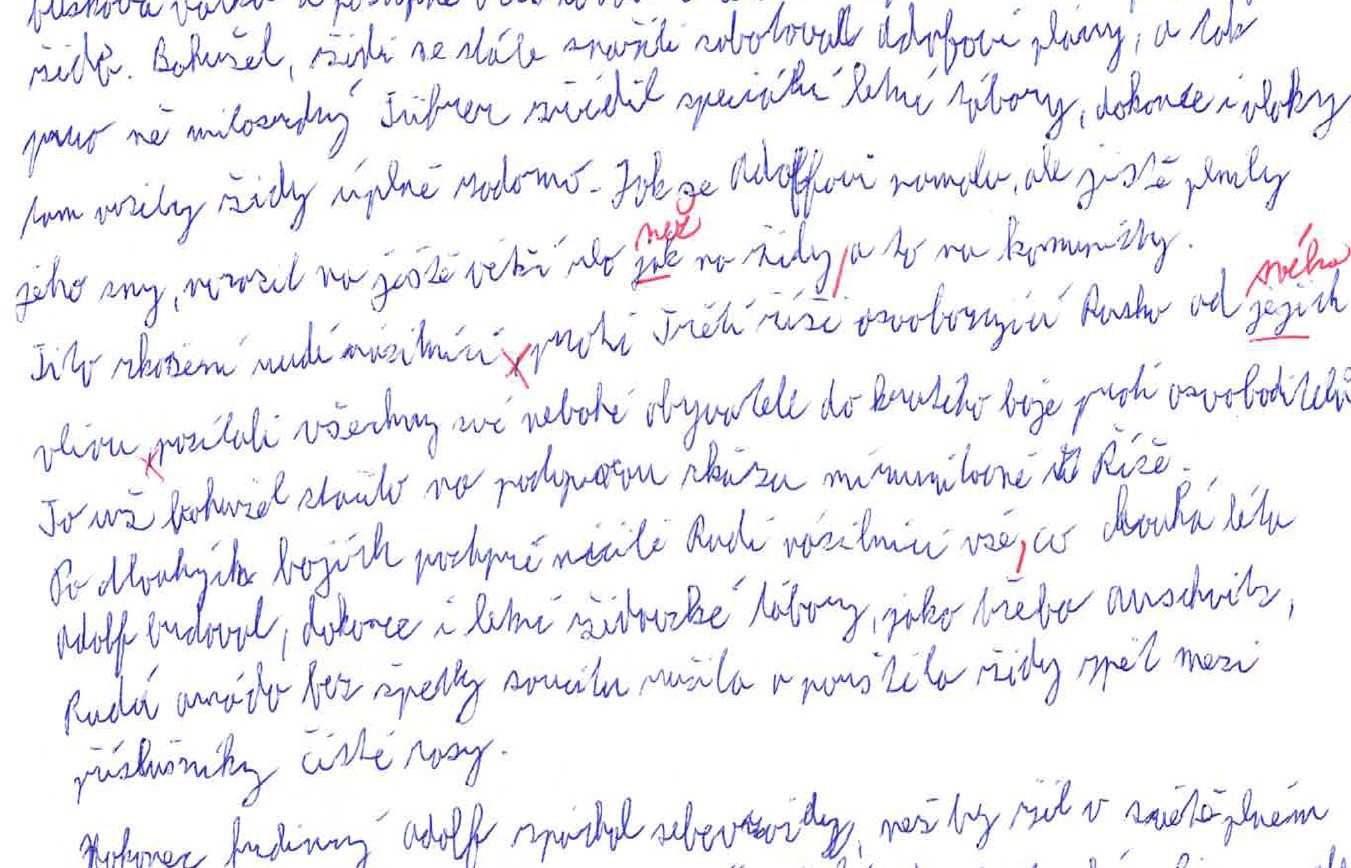 židů. Bohužel, židi se stále snažili sabotovat Adolfovi plány, a tak
pano né milosrdný Führer zřídil speciální letní tábory, dokonce i vlaky
tam vozily židy úplně zadarmo. Jak se Adolffovi pomalu, ale jistě plnily
než
jeho sny, narazil na ještě větší zlo jak na židy, a to na komunisty.
svého
Tito zkažení rudí násilníci proti Třetí říši osvobozující Rusko od jejich
vlivu posílali všechny své nebohé obyvatele do krutého boje proti osvoboditelů
To už bohužel stačilo na podepsanou zkázu mírumilovné Říše.
Po dlouhých bojích postupně ničili Rudí násilníci vše, co dlouhá léta
Adolf budoval, dokonce i letní židovské tábory, jako třeba Auschvitz,
Rudá armáda bez špetky soucitu rušila a pouštěla židy zpět mezi
příslušníky čisté rasy.
Nakonec hrdinný Adolf spáchal sebevraždy, než by žil v světě plném